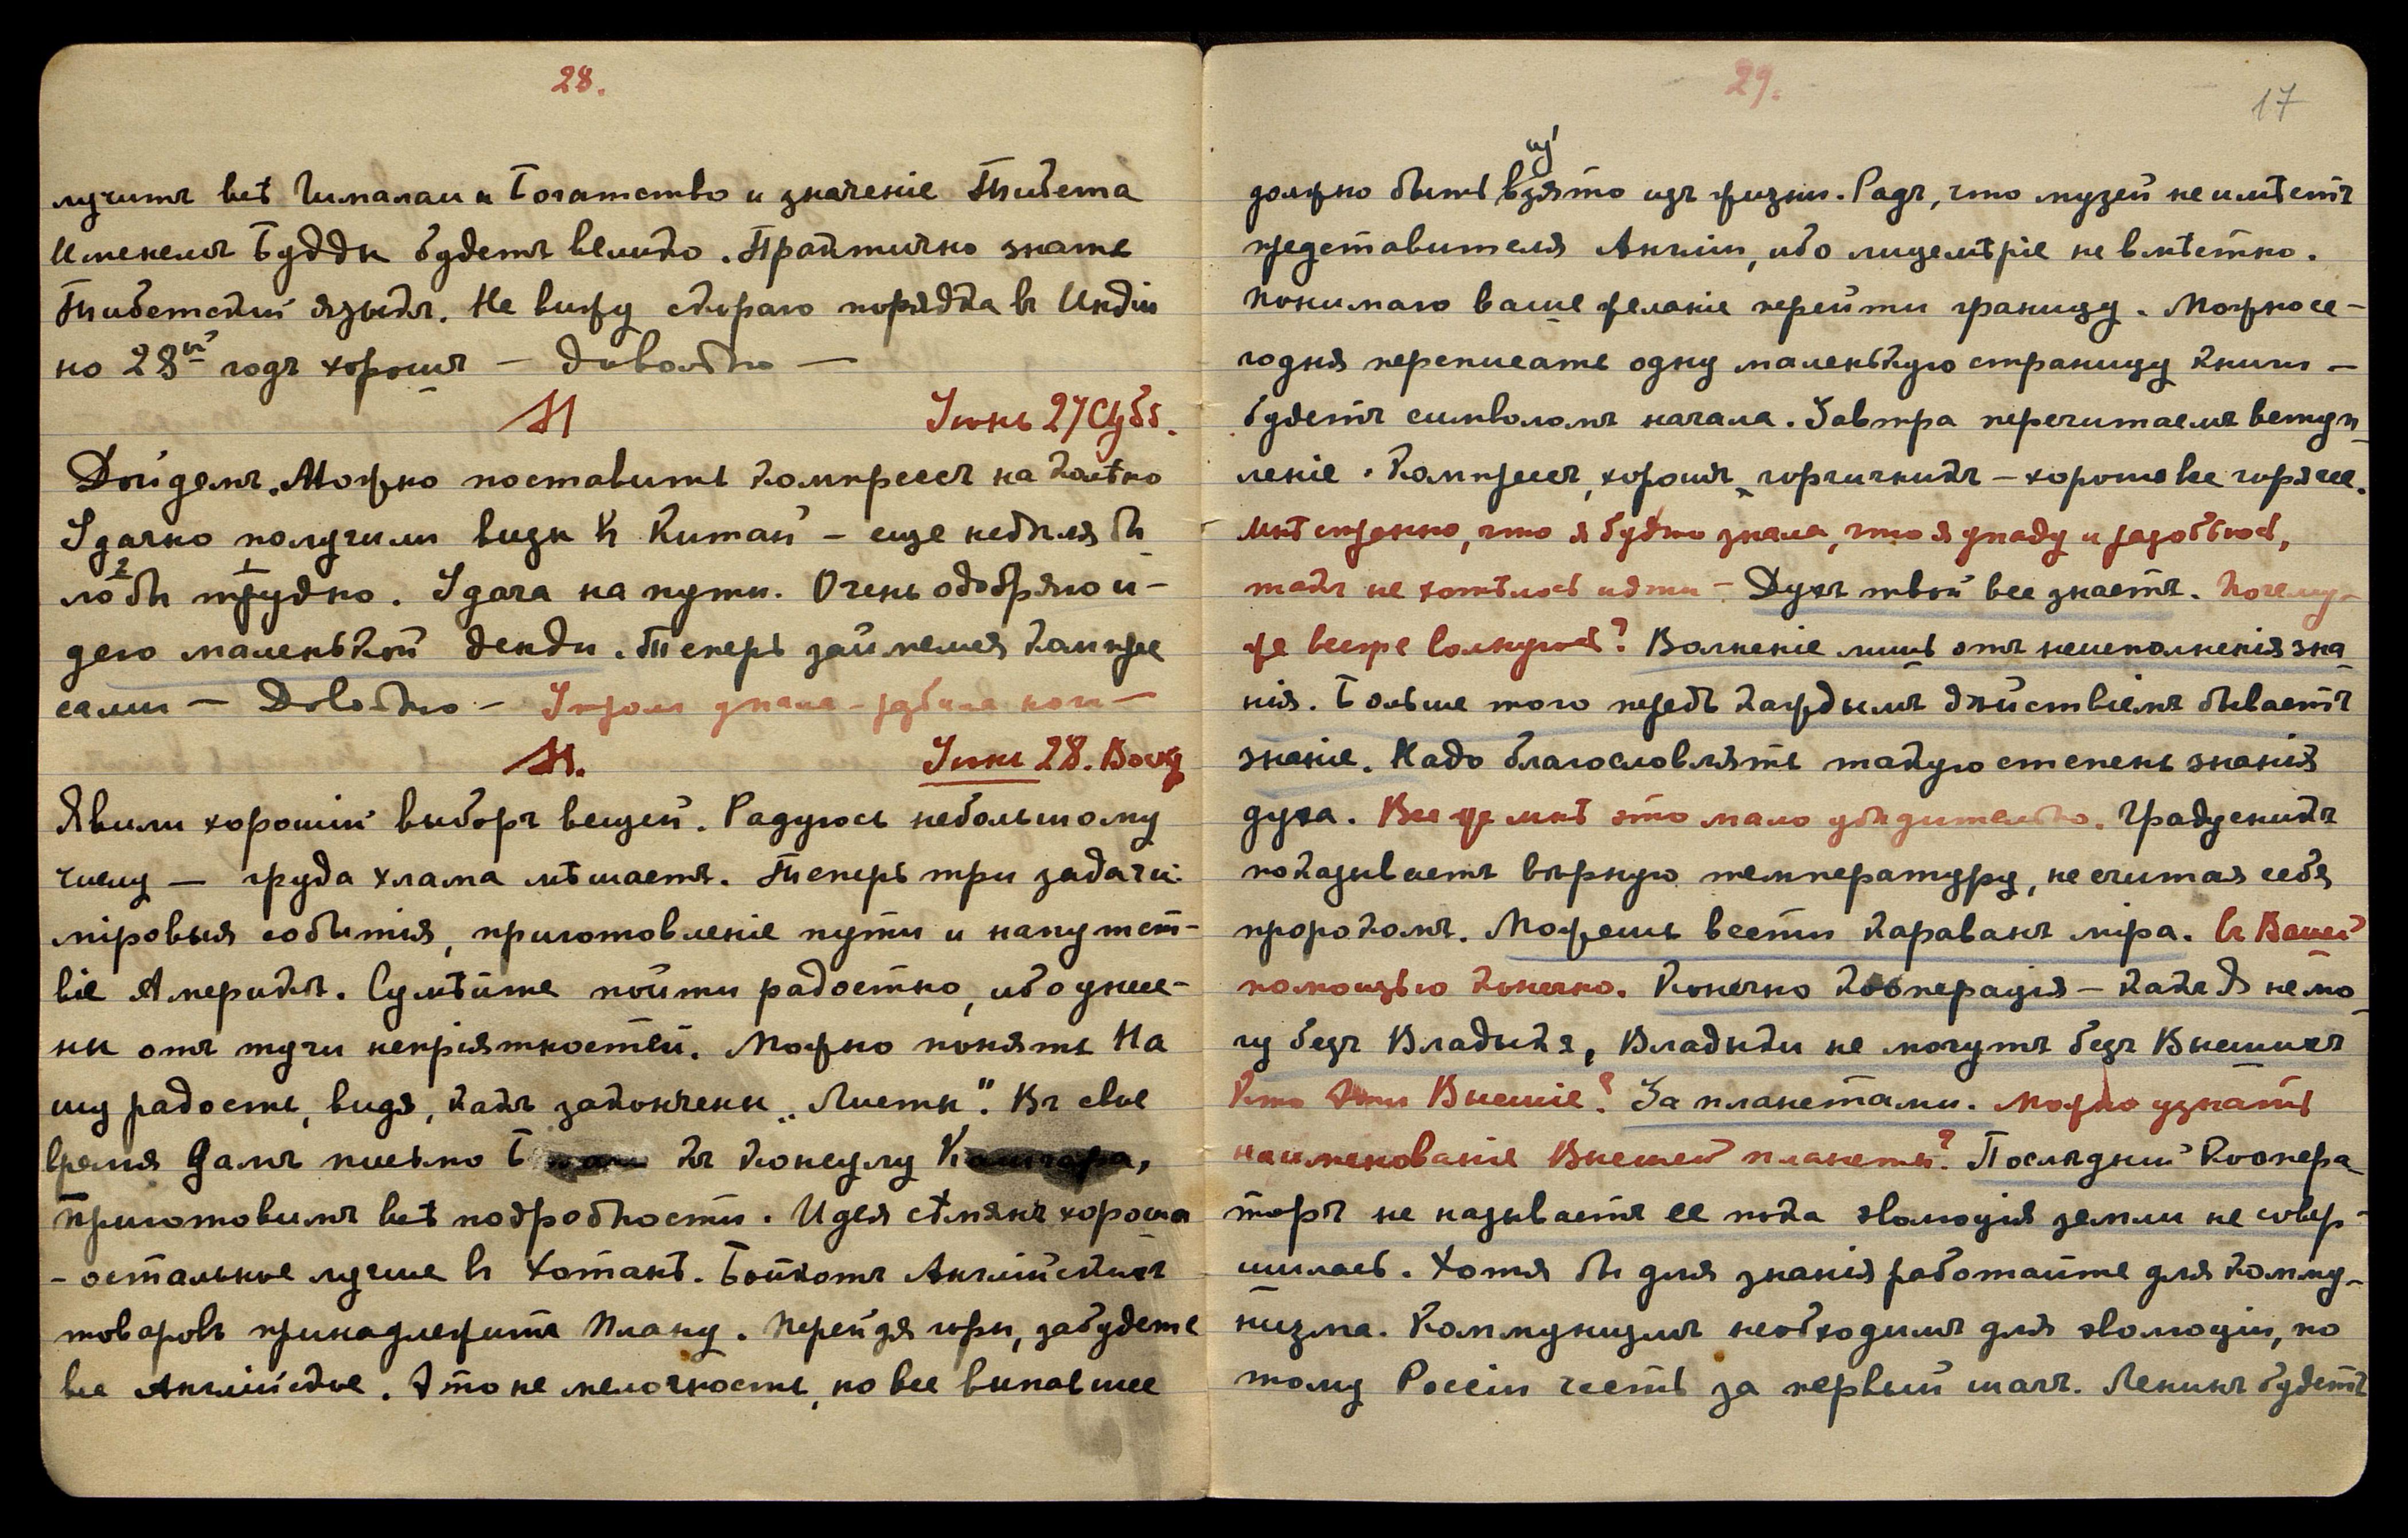 28.
лучитъ всѣ Гималаи и Богатство и значеніе Тибета
Именемъ Будды будетъ велико. Практично знать
Тибетскій языкъ. Не вижу скораго порядка въ Индіи
но 28й годъ хорошъ — Довольно —
М Іюнь 27 Субб.
Дойдемъ. Можно поставить компрессъ на колѣно
Удачно получили визы въ Китай — еще недѣля бы
ло бы трудно. Удача на пути. Очень одобряю и-
дею маленькой денди. Теперь займемся компре
ссами — Довольно — Утромъ упала — зубила ноги —
М. Іюнь 28. Воскр
Явили хорошій выборъ вещей. Радуюсь небольшому
числу — груда хлама мѣшаетъ. Теперь три задачи:
міровыя событія, приготовленіе пути и напутст-
віе Америкѣ. Сумѣйте пойти радостно, ибо унесе-
ны отъ тучи непріятностей. Можно понять На
шу радость, видя, какъ закончены „Листы". Въ свое
время Дамъ письмо къ консулу Кашгара,
приготовимъ всѣ подробности. Идея сѣмянъ хороша
- остальное лучше въ Хотанѣ. Бойкотъ Англійскихъ
товаровъ принадлежитъ Плану. Перейдя горы, забудете
все Англійское. Это не мелочность, но все выпавшее
29.
17
должно быть взято изъ жизни. Радъ, что музей не имѣетъ
представителя Англіи, ибо лицемѣріе не вмѣстно.
Понимаю ваше желаніе перейти границу. Можно се-
годня переписать одну маленькую страницу книги —
будетъ символомъ начала. Завтра перечитаемъ вступ
леніе. Компрессъ хорошъ, горчичникъ — хорошо все горячее.
Мнѣ странно, что я будто знала, что я упаду и разобьюсь,
такъ не хотѣлось идти — Духъ твой все знаетъ. Почему-
же все же волнуюсь? Волненіе лишь отъ неисполненія зна
нія. Больше того передъ каждымъ дѣйствіемъ бываетъ
знаніе. Надо благословлять такую степень знанія
духа. Все же мнѣ это мало убѣдительно. Градусникъ
показываетъ вѣрную температуру, не считая себя
пророкомъ. Можешь вести караванъ міра. Съ Вашей
помощью конечно. Конечно кооперація — какъ Я не мо
гу безъ Владыкъ, Владыки не могутъ безъ Внешнихъ
Кто Эти Внешніе? За планетами. Можно узнать
наименованіе Внешней планеты? Послѣдній Коопера
торъ не называетъ ее пока эволюція земли не совер-
шилась. Хотя бы для знанія работайте для комму-
низма. Коммунизмъ необходимъ для эволюціи, по
тому Россіи честь за первый шагъ. Ленинъ будетъ